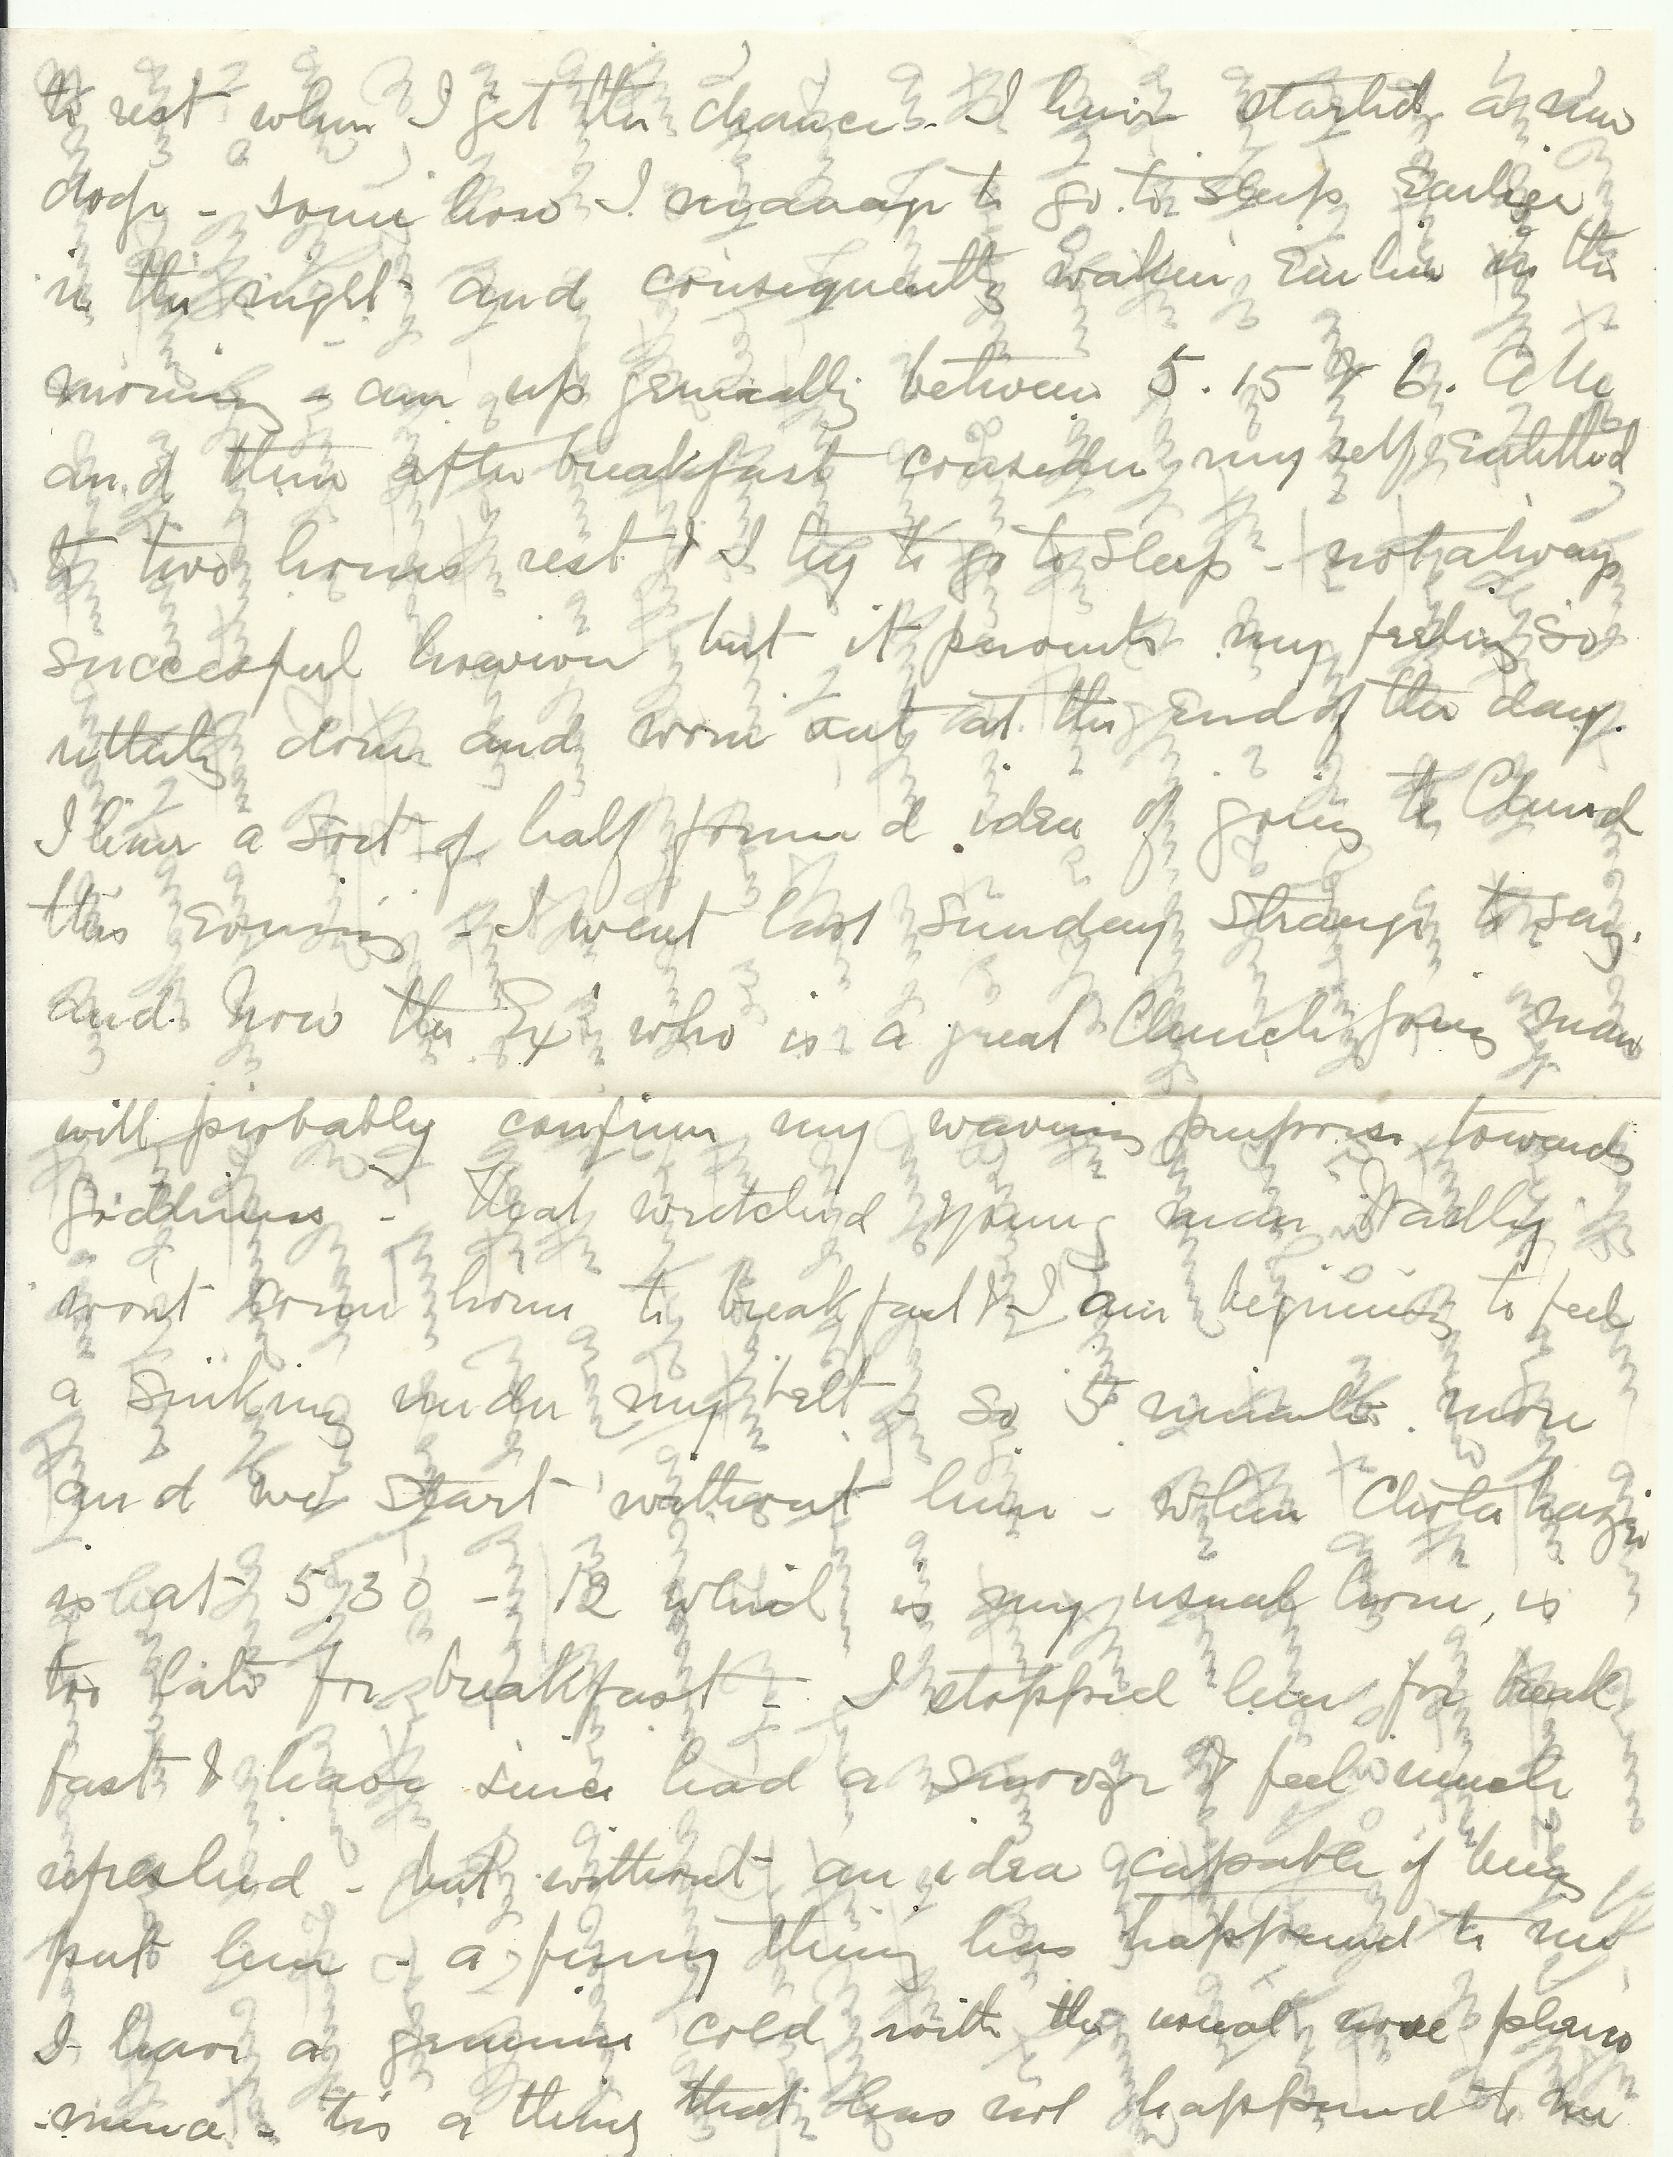 to rest when I get the chance - I have started a new
dodge - some how I manage to go to sleep Earlier
in the night and consequently waken Earlier in the
morning - am up generally between 5.15 & 6. AM
and then after breakfast consider myself Entitled
to two hours rest & I try to go to sleep - not always
successful however but it prevents my feeling so
utterly done and worn out at the End of the day.
I have a sort of half formed idea of going to Church
this Evening - I went last Sunday strange to say.
and now the Ex who is a great Church going man
will probably confirm my wavering purpose towards
Godliness - That wretched young man
wont come home to breakfast & I am beginning to feel
a sinking under my belt - so 5 minutes more
and we start without him - when Chota hazri
is at 5.30 - 12 which is my usual hour, is
too late for breakfast - I stopped here for break
fast & have since had a snooze & feel much
refreshed - but without an idea capable of being
put here - a funny thing has happened to me
I have a genuine cold with the usual nose pheno
-mena - tis a thing that has not happened to me